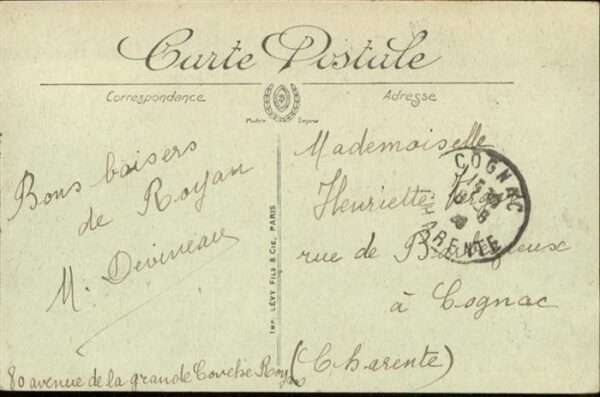 Carte Postale
Correspondance
Adresse
Bons baisers
de Royan
M. Devineau
80 avenue de la grande Conche Royan
IMP. LÉVY FILS & CIE, PARIS
Mademoiselle
Henriette
rue de Barbezieux
à Cognac
(Charente)
COGNAC
CHARENTE